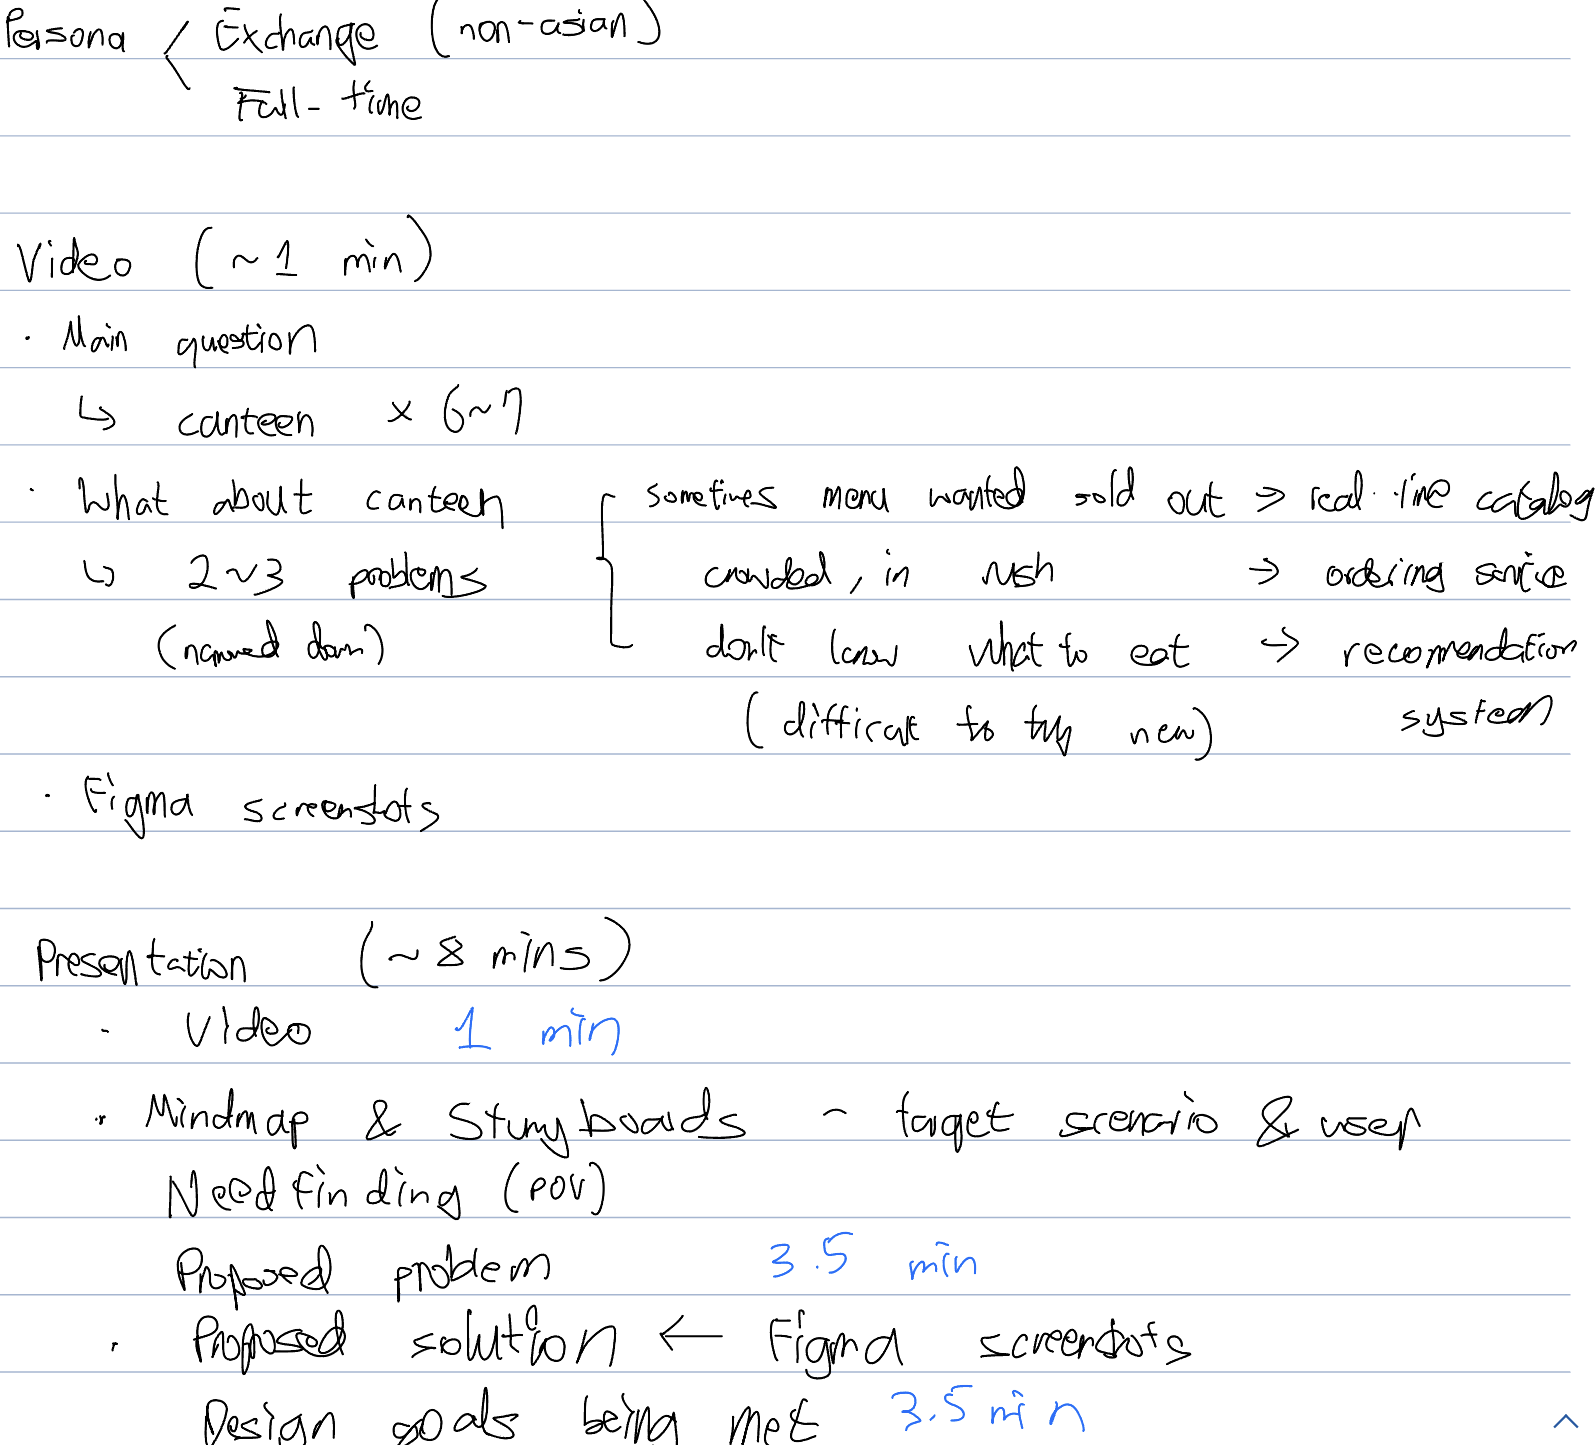 Persona < Exchange (non-asian)
Full-time
Video (~1 min)
· Main question
↳ canteen × 6~7
· What about canteen { sometimes menu wanted sold out → real-time catalog
↳ 2~3 problems crowded, in rush → ordering service
(narrowed down) don't know what to eat → recommendation
(difficult to try new) system
· Figma screenshots
Presentation (~8 mins)
· Video 1 min
· Mindmap & Storyboards - target scenario & user
Needfinding (POV)
Proposed problem 3.5 min
· Proposed solution ← Figma screenshots
Design goals being met 3.5 min